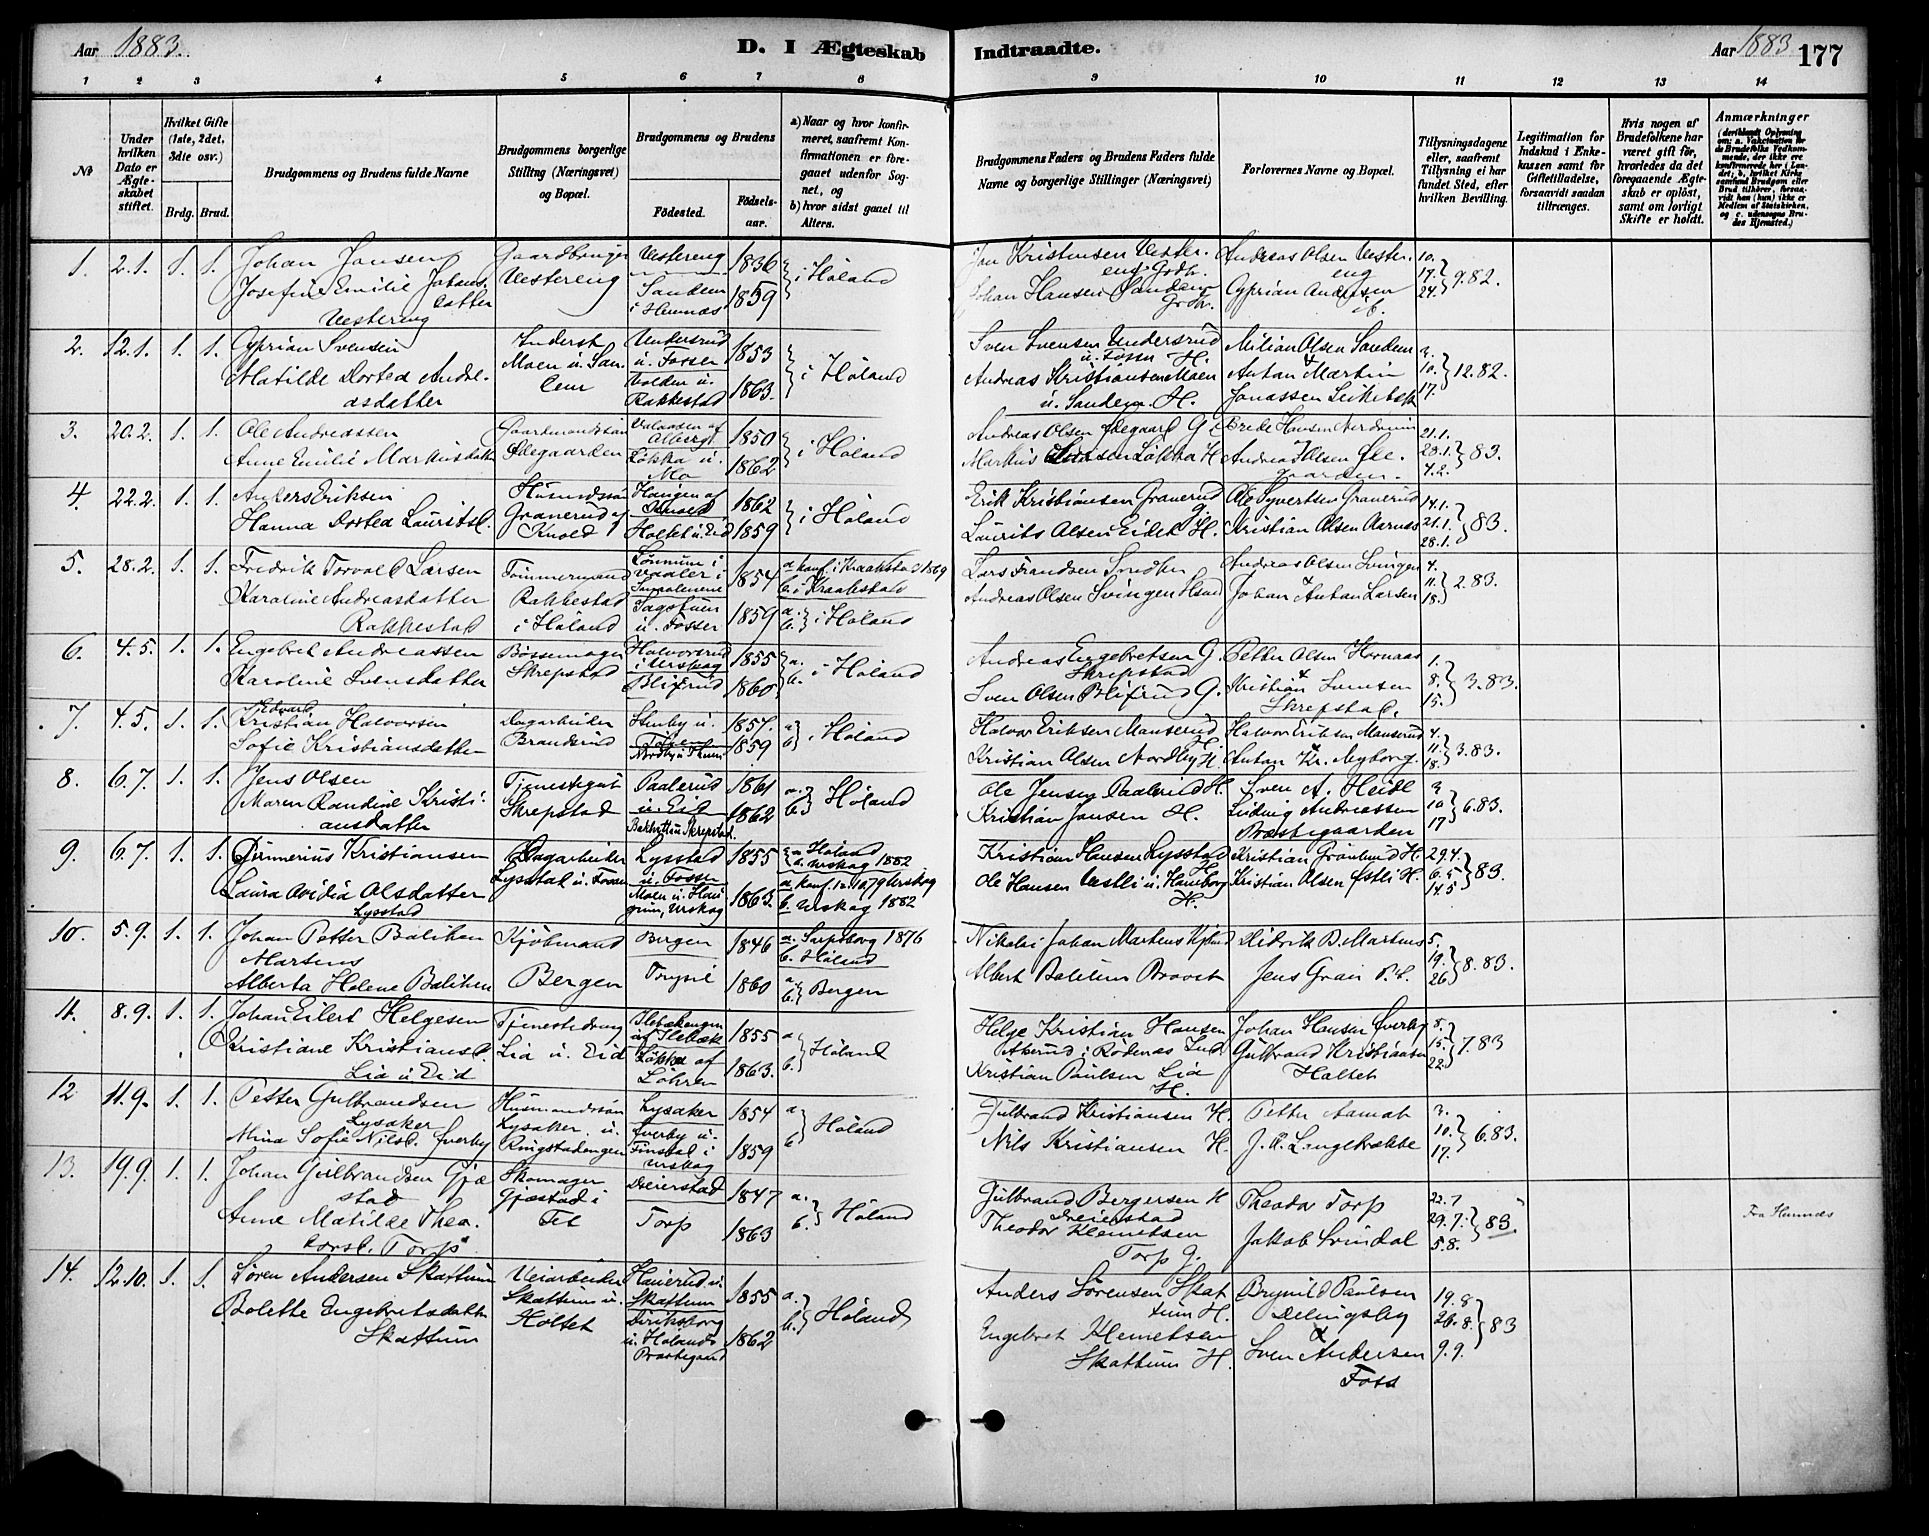 Aar 1883.
D. I Ægteskab Indtraadte.
Aar 1883 177
1 2 3 4 5 6 7 8 9 10 11 12 13 14
No
Under hvilken Dato er Ægteskabet stiftet.
Hvilket Gifte (1ste, 2det, 3die osv.)
Brdg. Brud.
Brudgommens og Brudens fulde Navne
Brudgommens borgerlige Stilling (Næringsvei) og Bopæl.
Brudgommens og Brudens
Födested. Födsels-aar.
a) Naar og hvor konfirmeret, saafremt Konfirmationen er foregaaet udenfor Sognet, og
b) hvor sidst gaaet til Alters.
Brudgommens Faders og Brudens Faders fulde Navne og borgerlige Stillinger (Næringsvei)
Forlovernes Navne og Bopæl.
Tillysningsdagene eller, saafremt Tillysning ei har fundet Sted, efter hvilken Bevilling.
Legitimation for Indskud i Enkekassen samt for Giftetilladelse, forsaavidt saadan tiltrænges.
Hvis nogen af Brudefolkene har været gift för, hvorledes da det foregaaende Ægteskab er oplöst, samt om lovligt Skifte er holdt.
Anmærkninger
1. 2.1. 1. 1. Johan Jansen
Josefine Emilie Johansdatter
Vestereng
Gaardbruger
Vestereng
Vestereng 1836
Sandem i Hemnæs 1859
i Höland
Jan Kristensen Vestereng Grdbr.
Johan Hansen Sandem Grdbr.
Andreas Olsen Vestereng
Cyprian Andersen
10. 17. 24. 9.82.
2. 12.1. 1. 1. Cyprian Svensen
Matilde Dorted Andreasdatter
Inderst
Moen u. Sandem
Undersrud u. Fosser 1853
Volden u. Rakkestad 1863.
i Höland
Sven Svensen Undersrud u. Fosser H.
Andreas Kristiansen Moen u. Sandem. H.
Milian Olsen Sandem
Anton Martin
Jonassen
3. 10. 17. 12.82.
3. 20.2. 1. 1. Ole Andreassen
Anne Emilie Markusdatter
Gaardmandssön
Ödegaarden
1850
Lökka u. Mo 1862
i Höland
Andreas Olsen Ödegaard G
Markus Lökka H
Brede Hansen
Andreas Olsen
21.1. 28.1. 4.2. 83.
4. 22.2. 1. 1. Anders Eriksen
Hanna Dorted Lauritsd.
Husmdssön
Granerud af Knold
Haugen af Knold 1862
Holtet u. Eid 1859
i Höland
Erik Kristiansen Granerud G.
Laurits Olsen Eidet H.
Ole Syvertsen Granerud
Kristian Olsen Aarnæs
14.1. 21.1. 28.1. 83.
5. 28.2. 1. 1. Fredrik Torvald Larsen
Karoline Andreasdatter
Rakkestad
Tömmermand
Rakkestad
i Höland
Vaaler i Smaalenene 1854
Sagstuen u. Fosser 1859
a konf. i Kraakstad 1869
b. i Kraakstad
a. b. i Höland
Lars Frandsen
Andreas Olsen Svingen
Andreas Olsen Svingen
Johan Anton Larsen
4. 11. 18. 2.83.
6. 4.5. 1. 1. Engebret Andreassen
Karoline Svensdatter
Bössemager
Skrepstad
Halvorsrud i Urskog 1855
Blixrud 1860
a. b. i Höland
Andreas Engebretsen G. Skrepstad
Sven Olsen Blixrud G.
Petter Olsen Hornaas
Kristian Svensen
Skrepstad.
1. 8. 15. 3.83.
7. 4.5. 1. 1. Kristian Edvard Halvorsen
Sofie Kristiansdatter
Dagarbeider
Branderud
1857.
1859
a b i Höland
Halvor Eriksen Manserud H.
Kristian Olsen Nordby H.
Halvor Eriksen Manserud
Anton Kr. Nyborg.
4. 11. 18. 3.83.
8. 6.7. 1. 1. Jens Olsen
Maren Randine Kristiansdatter
Tjenestegut
Skrepstad
Paalerud u. Eid 1861
Bakhytten Skrepstad. 1862
a. b. Höland
Ole Jensen Paalerud H.
Kristian Jansen H.
Sven A. Heidl
Ludvig Andreassen
Præstegaarden
3 10 17 6.83.
9. 6.7. 1. 1. Gunnerius Kristiansen
Laura Ovidia Olsdatter
Lysstad
Dagarbeider
Lysstad u. Fosser
Lysstad u. Fosser 1855
Moen u. Urskog 1863.
a. Höland
b. Urskog 1882
a. konf. 12.10.79 Urskog
b. Urskog 1882
Kristian Hansen Lysstad H.
Ole Hansen Vestli u. Haneborg H.
Kristian Grönlund H.
Kristian Olsen Östli H.
29.4. 6.5 14.5 83.
10. 5.9. 1. 1. Johan Petter Balchen
Martens
Alberta Helene Balchen
Kjöbmand
Bergen
Bergen 1846
Trysil 1860
a. Sarpsborg 1876
b. Höland
a. b. Bergen
Nikolai Johan Martens
Albert Balchen Provst
Didrik B. Martens
Jens Gran
5. 19. 26 8.83.
11. 8.9. 1. 1. Johan Eilert Helgesen
Kristiane Kristiansd.
Lia u Eid
Tjenestedreng
Lia u. Eid
Ilebækengen af Ilebæk 1855
Lökka af Löhren 1863.
a b. Höland
Helge Kristian Hansen
Akerud i Rödenæs Ind.
Kristian Paulsen Lia H.
Johan Hansen Överby
Gulbrand Kristiansen
Holtet
8. 15. 22. 7.83
12 11.9. 1. 1. Petter Gulbrandsen
Lysaker
Mina Sofie Nilsd. Överby
Husmandssön
Lysaker u.
Ringstadengen
Lysaker 1854
Överby u. Finstad i Urskog 1859
a b Höland
Gulbrand Kristiansen H.
Nils Kristiansen H.
Petter Aamodt
J. K. Langebrække
3. 10. 17. 6.83.
13. 19.9. 1. 1. Johan Gulbrandsen Gjæstad
Anne Matilde Theodorsd. Torp
Skomager
Gjæstad i
Fet
Dreierstad 1847
Torp 1863
a. b. Höland
Gulbrand Bergersen H
Dreierstad
Theodor Klemetsen
Torp G.
Theodor Torp
Jakob Svindal
22.7 29.7. 5.8. 83.
Fra Hemnæs
14. 12.10. 1. 1. Sören Andersen Skattum
Bolette Engebretsdatter
Skattum
Veiarbeider
Skattum u.
Holtet
Skattum 1855
Deriksborg u. Hölands Præstegaard 1862
a. b. Höland
Anders Sörensen Skattum H.
Engebret Klemetsen
Skattum H.
Brynild Paulsen
Delingsby
Sven Andersen
Foss
19.8 26.8. 9.9. 83